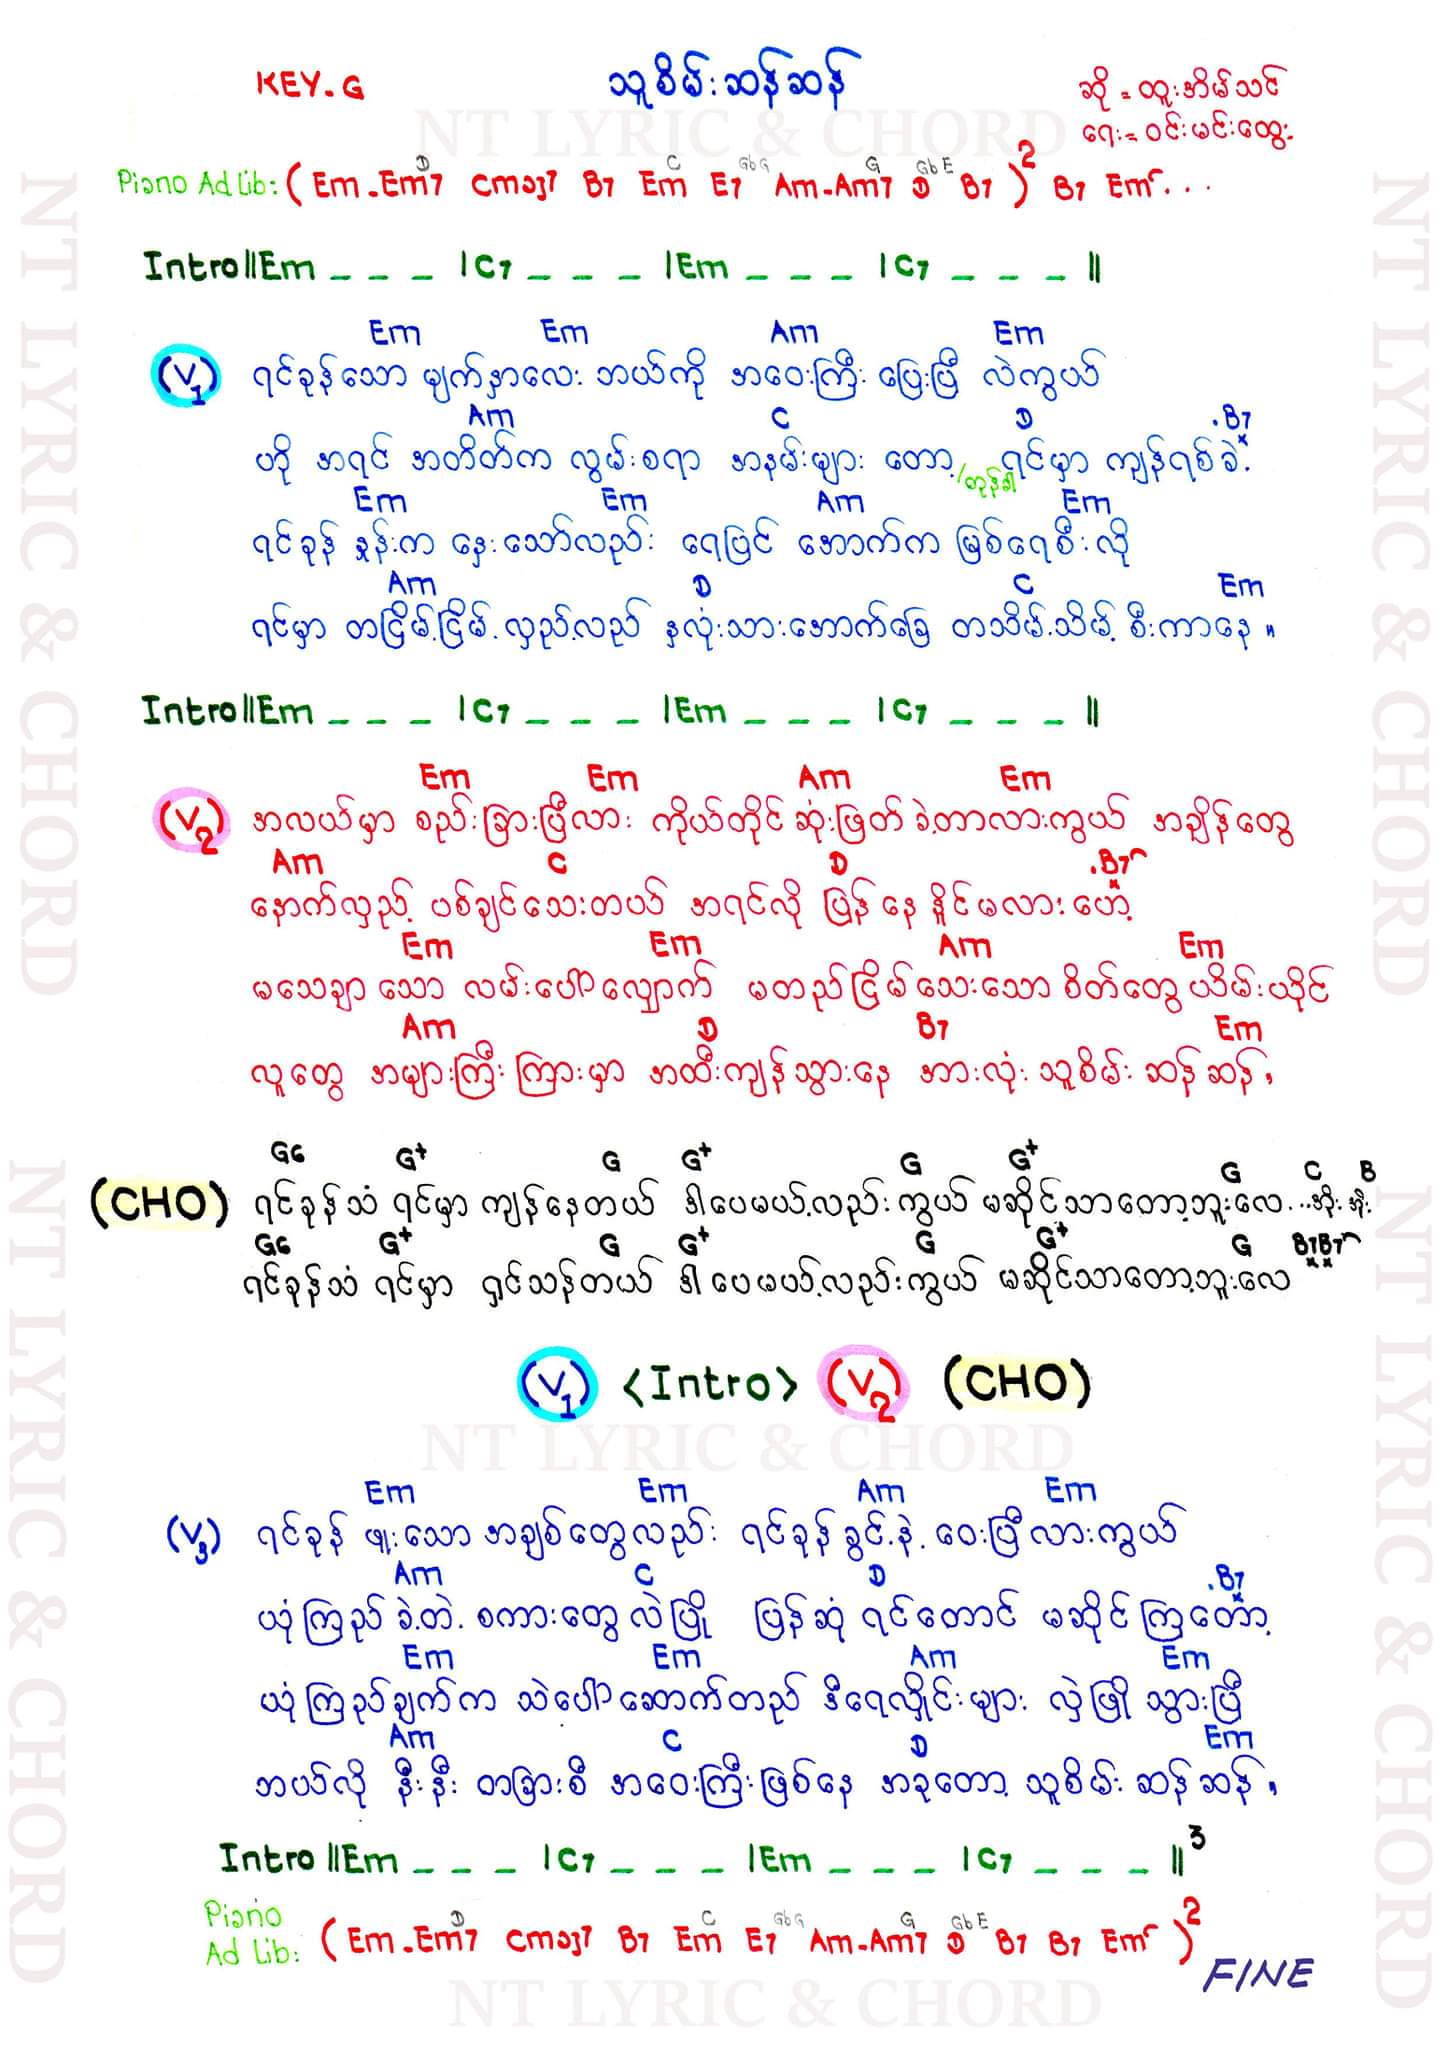 KEY. G
သူစိမ်းဆန်ဆန်
ဆို = ထူးအိမ်သင်
ရေး = ဝင်းမင်းထွေး
NT LYRIC & CHORD
D C GbG G GbE
Piano Ad Lib: ( Em - Em7 Cmaj7 B7 Em E7 Am - Am7 D B7 )2 B7 Em . . .
Intro || Em _ _ _ | C7 _ _ _ | Em _ _ _ | C7 _ _ _ ||
Em Em Am Em
(V1) ရင်ခုန်သော မျက်နှာလေး ဘယ်ကို အဝေးကြီး ပြေးပြီ လဲကွယ်
Am C D .B7
ဟို အရင် အတိတ်က လွမ်းစရာ အနမ်းများ တော့ ရင်မှာ ကျန်ရစ်ခဲ့.
/တုန်ခါ
Em Em Am Em
ရင်ခုန် နှုန်းက နှေးသော်လည်း ရေပြင် အောက်က မြစ်ရေစီးလို
Am D C Em
ရင်မှာ တငြိမ့်ငြိမ့် လှည့်လည် နှလုံးသားအောက်ခြေ တသိမ့်သိမ့် စီးကာနေ။
Intro || Em _ _ _ | C7 _ _ _ | Em _ _ _ | C7 _ _ _ ||
Em Em Am Em
(V2) အလယ်မှာ စည်းခြားပြီလား ကိုယ်တိုင် ဆုံးဖြတ်ခဲ့တာလားကွယ် အချိန်တွေ
Am C D .B7
နောက်လှည့် ပစ်ချင်သေးတယ် အရင်လို ပြန်နေ နိူင်မလားဟေ့
Em Em Am Em
မသေချာသော လမ်းပေါ်လျှောက် မတည်ငြိမ်သေးသော စိတ်တွေ ယိမ်းယိုင်
Am D B7 Em
လူတွေ အများကြီး ကြားမှာ အထီးကျန်သွားနေ အားလုံး သူစိမ်း ဆန်ဆန်,
G6 G+ G G+ G G+ G C B
(CHO) ရင်ခုန်သံ ရင်မှာ ကျန်နေတယ် ဒါပေမယ့်လည်းကွယ် မဆိုင်သာတော့ဘူးလေ...အိုး အိုး
G6 G+ G G+ G G+ G B7B7
ရင်ခုန်သံ ရင်မှာ ရှင်သန်တယ် ဒါပေမယ့်လည်းကွယ် မဆိုင်သာတော့ဘူးလေ
(V1) <Intro> (V2) (CHO)
NT LYRIC & CHORD
Em Em Am Em
(V3) ရင်ခုန် ဖူးသော အချစ်တွေလည်း ရင်ခုန်ခွင့်နဲ့ ဝေးပြီလားကွယ်
Am C D .B7
ယုံကြည်ခဲ့တဲ့ စကားတွေ လဲပြို ပြန်ဆုံ ရင်တောင် မဆိုင်ကြတော့
Em Em Am Em
ယုံကြည်ချက်က သဲပေါ်ဆောက်တည် ဒီရေလှိုင်းများ လှဲဖြို သွားပြီ
Am C D Em
ဘယ်လို နီးနီး တခြားစီ အဝေးကြီးဖြစ်နေ အခုတော့ သူစိမ်း ဆန်ဆန်,
Intro || Em _ _ _ | C7 _ _ _ | Em _ _ _ | C7 _ _ _ ||3
D C GbG G GbE
Piano Ad Lib: ( Em - Em7 Cmaj7 B7 Em E7 Am - Am7 D B7 B7 Em )2
FINE
NT LYRIC & CHORD
NT LYRIC & CHORD
NT LYRIC & CHORD
NT LYRIC & CHORD
NT LYRIC & CHORD